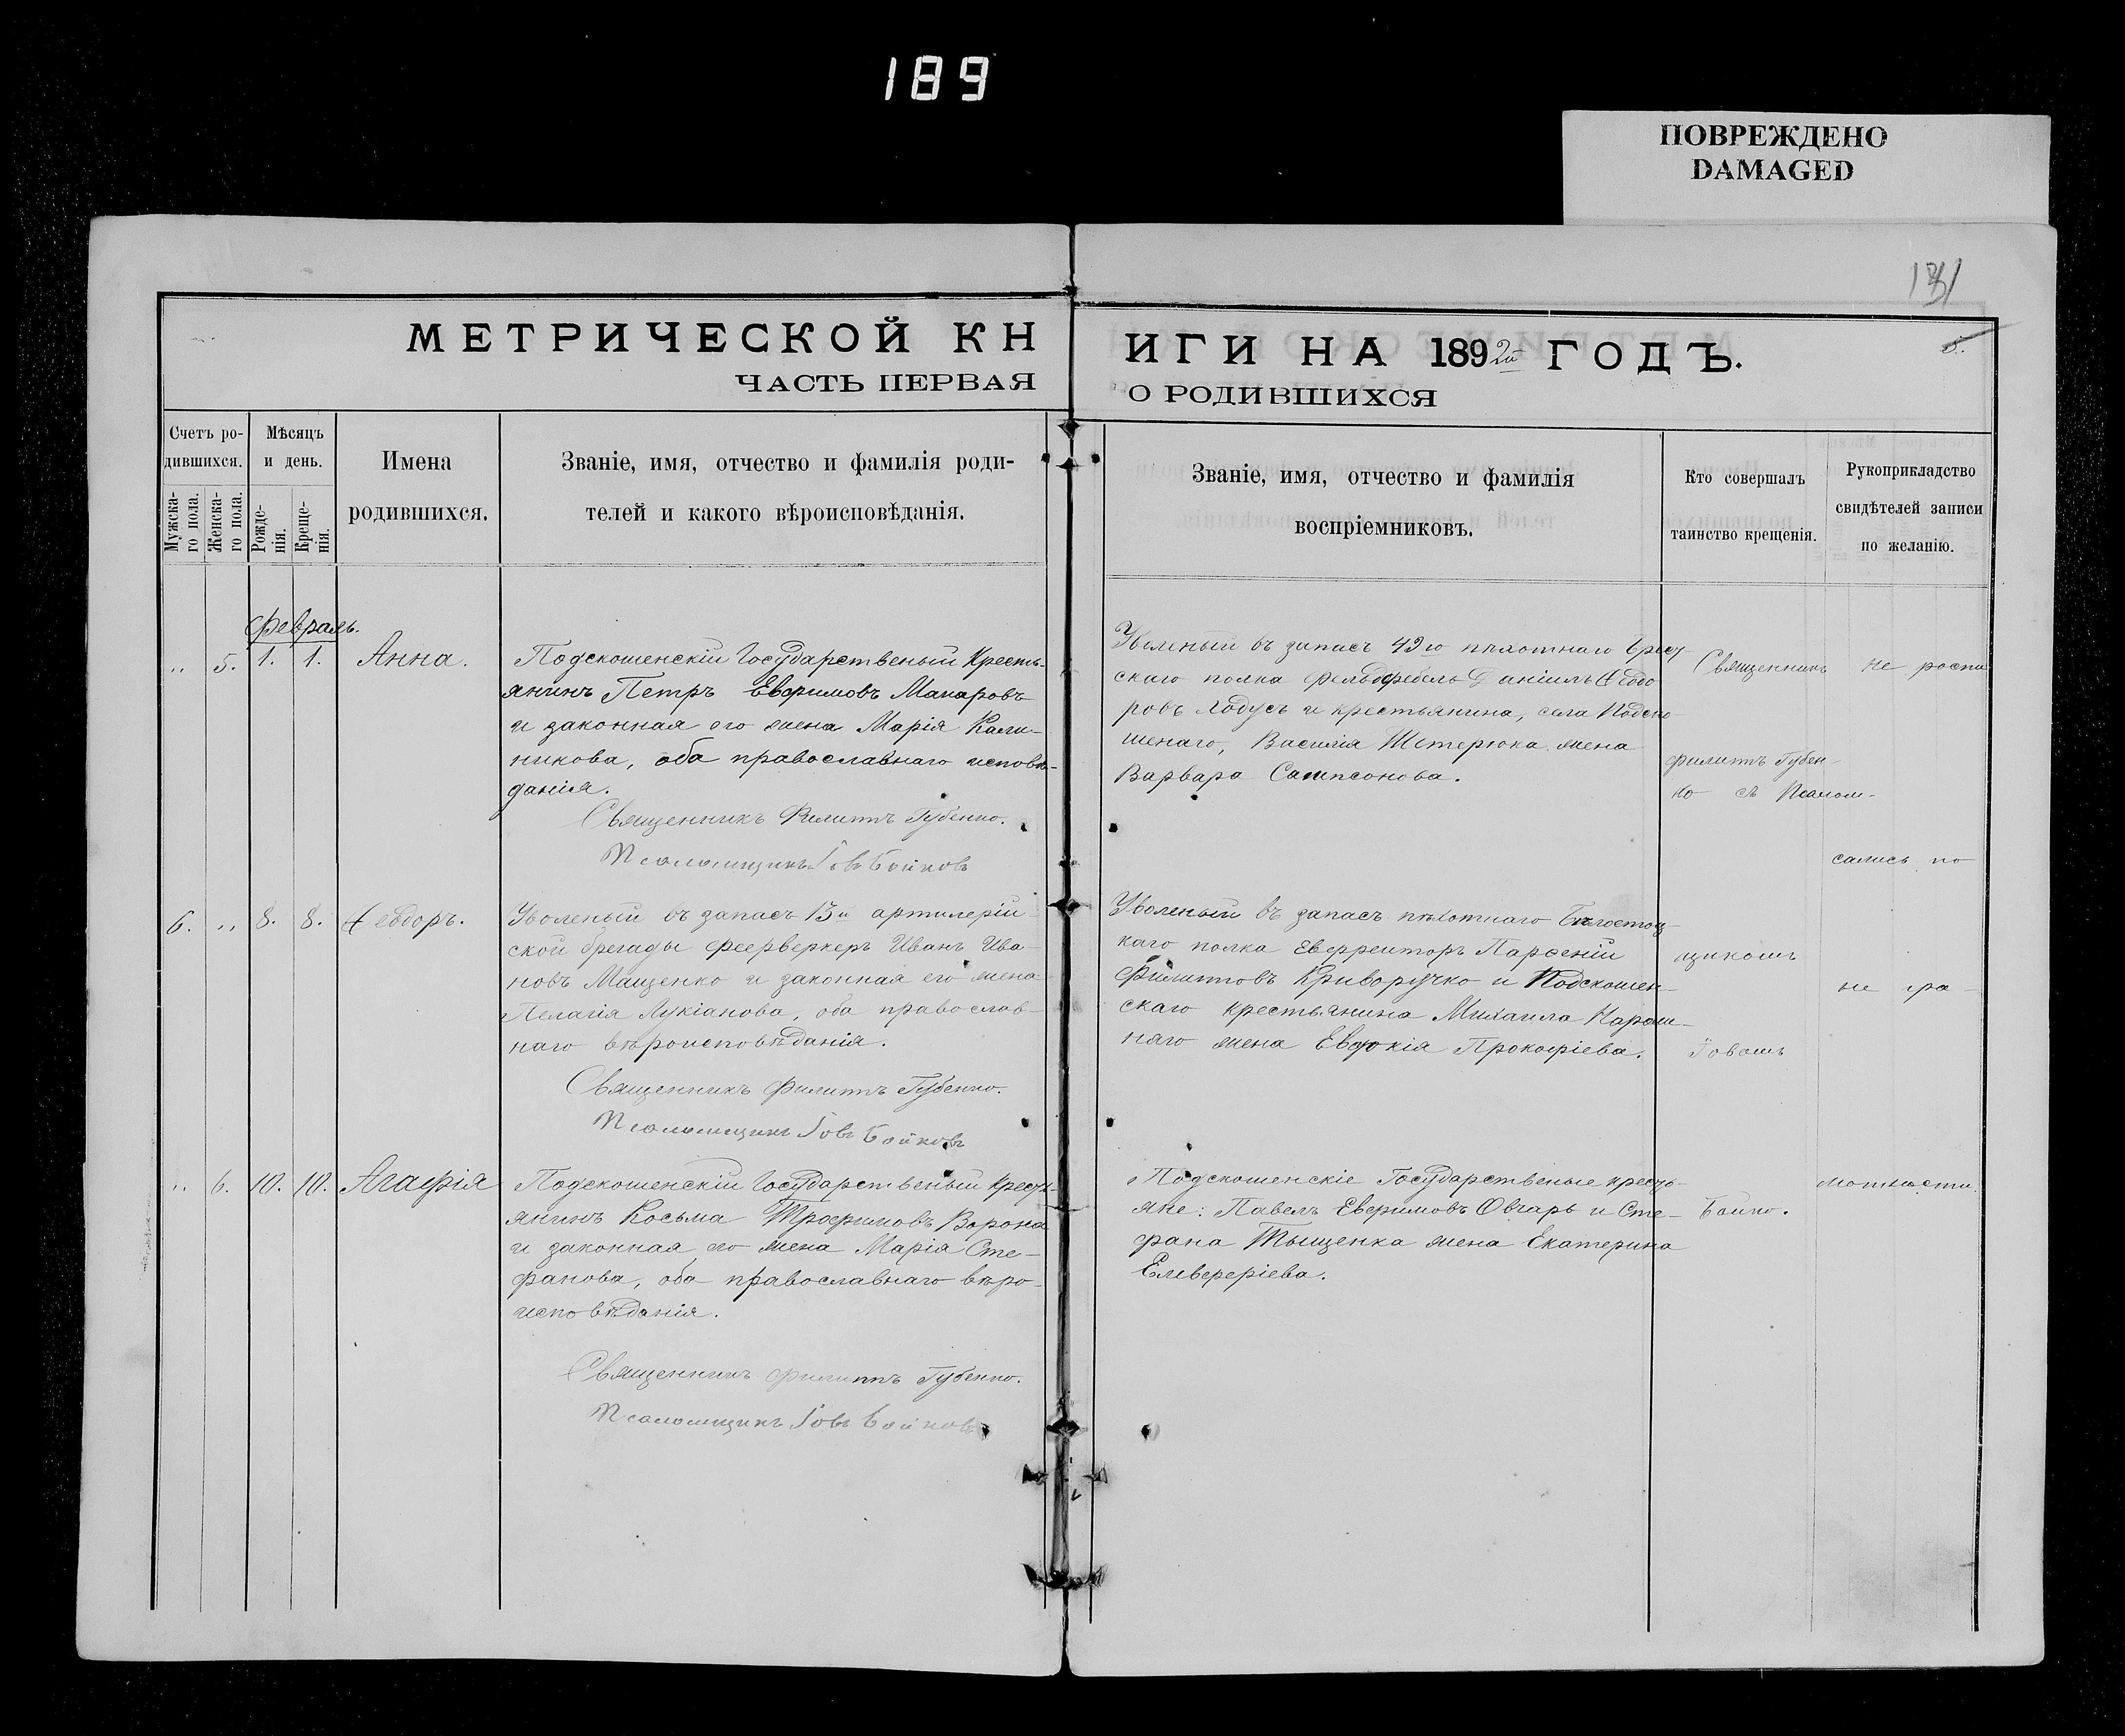 189
ПОВРЕЖДЕНО
DAMAGED
МЕТРИЧЕСКОЙ КН
ИГИ НА 1892й ГОДЪ.
ЧАСТЬ ПЕРВАЯ
О РОДИВШИХСЯ
Счетъ ро-
дившихся.
Мужска-
го пола.
Женска-
го пола.
Мѣсяцъ
и день.
Рожде-
нія.
Креще-
нія.
Имена
родившихся.
Званіе, имя, отчество и фамилія роди-
телей и какого вѣроисповѣданія.
Званіе, имя, отчество и фамилія
воспріемниковъ.
Кто совершалъ
таинство крещенія.
Рукоприкладство
свидѣтелей записи
по желанію.
Февраль.
„ 5. 1. 1. Анна.
Подскошенскій Государственый Кресть-
янинъ Петръ Евѳимовъ Макаровъ
и законная его жена Марія Кали-
никова, оба православнаго исповѣ-
данія.
Священникъ Филиппъ Губенко.
Псаломщикъ Іовъ Бойковъ
Уволеный въ запасъ 49го пѣхотнаго Брест
скаго полка фельдфебель Даніилъ Ѳеодо
ровъ Ходусъ и крестьянина, села Подско
шенаго, Василія Тетерюка жена
Варвара Сампсонова.
6. „ 8. 8. Ѳеодоръ.
Уволеный въ запасъ 13й артилерій-
ской бригады феерверкеръ Иванъ Ива-
новъ Мащенко и законная его жена
Пелагія Лукіанова, оба православ-
наго вѣроисповѣданія.
Священникъ Филиппъ Губенко.
Псаломщикъ Іовъ Бойковъ
Уволеный въ запасъ пѣхотнаго Бѣлостоц-
каго полка Ефрейторъ Парѳеній
Филиповъ Криворучко и Подскошен-
скаго крестьянина Михаила
няго жена Евдокія Прокофіева.
„ 6. 10. 10. Агафія
Подскошенскій Государственый Кресть-
янинъ Косьма Трофимовъ Ворона
и законная его жена Марія Сте-
фанова, оба православнаго вѣро-
исповѣданія.
Священникъ Филиппъ Губенко.
Псаломщикъ Іовъ Бойковъ
Подскошенскіе Государственые кресть-
яне: Павелъ Евѳимовъ Овчарь и Сте-
фана Тыщенка жена Екатерина
Елевѳеріева.
Священникъ
Филиппъ Губен-
ко съ Псалом-
щикомъ
Іовомъ
Бойко.
не роспи
сались по
не гра-
мотности.